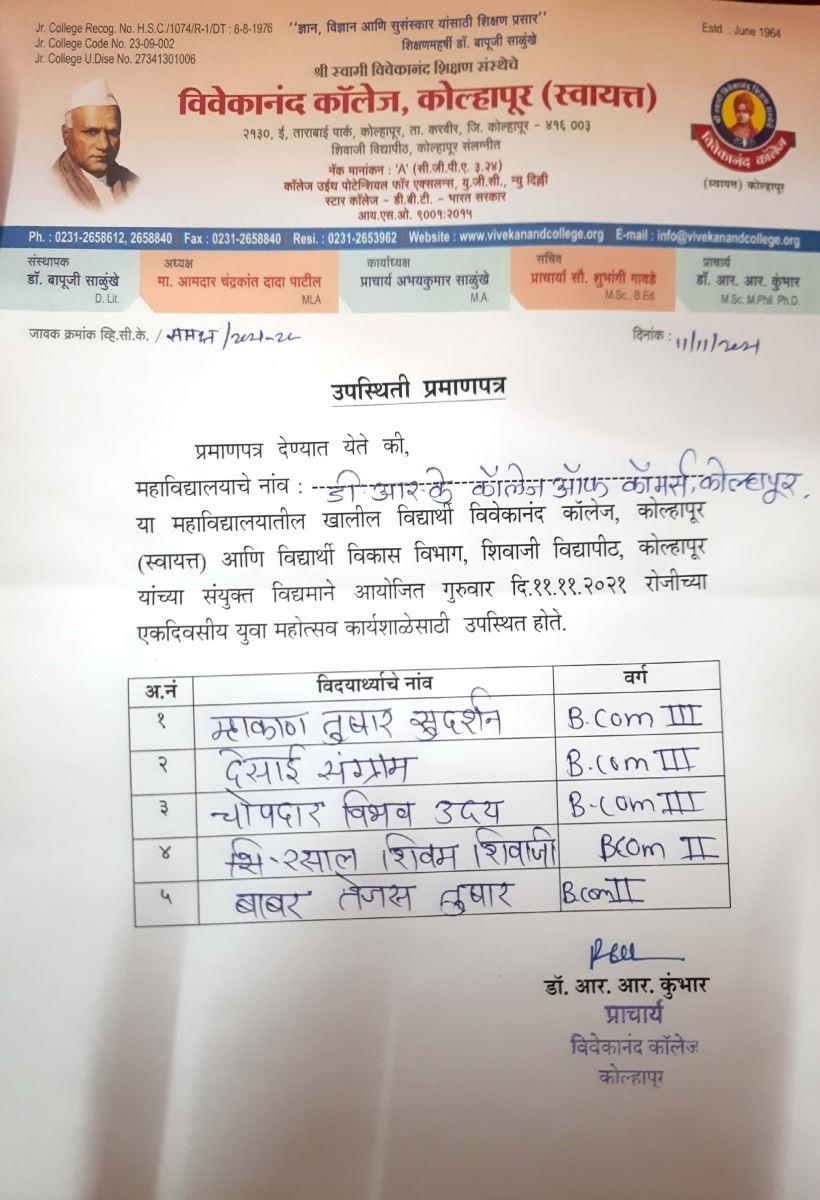 Jr. College Recog. No. H.S.C./1074/R-1/DT : 8-8-1976
Jr. College Code No. 23-09-002
Jr. College U.Dise No. 27341301006
"ज्ञान, विज्ञान आणि सुसंस्कार यांसाठी शिक्षण प्रसार"
शिक्षणमहर्षी डॉ. बापूजी साळुंखे
Estd. : June 1964
श्री स्वामी विवेकानंद शिक्षण संस्थेचे
विवेकानंद कॉलेज, कोल्हापूर (स्वायत्त)
२१३०, ई, ताराबाई पार्क, कोल्हापूर, ता. करवीर, जि. कोल्हापूर - ४१६ ००३
शिवाजी विद्यापीठ, कोल्हापूर संलग्नीत
नॅक मानांकन : 'A' (सी.जी.पी.ए. ३.२४)
कॉलेज उईथ पोटेन्शियल फॉर एक्सलन्स, यु.जी.सी., न्यु दिल्ली
स्टार कॉलेज - डी.बी.टी. - भारत सरकार
आय.एस.ओ. ९००१:२०१५
विवेकानंद कॉलेज
(स्वायत्त) कोल्हापूर
Ph. : 0231-2658612, 2658840 Fax : 0231-2658840 Resi. : 0231-2653962 Website : www.vivekanandcollege.org E-mail : info@vivekanandcollege.org
संस्थापक
डॉ. बापूजी साळुंखे
D. Lit.
अध्यक्ष
मा. आमदार चंद्रकांत दादा पाटील
MLA
कार्याध्यक्ष
प्राचार्य अभयकुमार साळुंखे
M.A.
सचिव
प्राचार्या सौ. शुभांगी गावडे
M.Sc., B.Ed.
प्राचार्य
डॉ. आर. आर. कुंभार
M.Sc. M.Phil. Ph.D.
जावक क्रमांक व्हि.सी.के. / समक्ष /२०२१-२२
दिनांक : ११/११/२०२१
उपस्थिती प्रमाणपत्र
प्रमाणपत्र देण्यात येते की,
महाविद्यालयाचे नांव : डी आर के कॉलेज ऑफ कॉमर्स, कोल्हापूर.
या महाविद्यालयातील खालील विद्यार्थी विवेकानंद कॉलेज, कोल्हापूर
(स्वायत्त) आणि विद्यार्थी विकास विभाग, शिवाजी विद्यापीठ, कोल्हापूर
यांच्या संयुक्त विद्यमाने आयोजित गुरुवार दि.११.११.२०२१ रोजीच्या
एकदिवसीय युवा महोत्सव कार्यशाळेसाठी उपस्थित होते.
अ.नं विदयार्थ्याचे नांव वर्ग
१ म्हाकाण तुषार सुदर्शन B.Com III
२ देसाई संग्राम B.Com III
३ चोपदार विभव उदय B-Com III
४ रसाल शिवम शिवाजी BCom II
५ बाबर तेजस तुषार B.com II
डॉ. आर. आर. कुंभार
प्राचार्य
विवेकानंद कॉलेज
कोल्हापूर